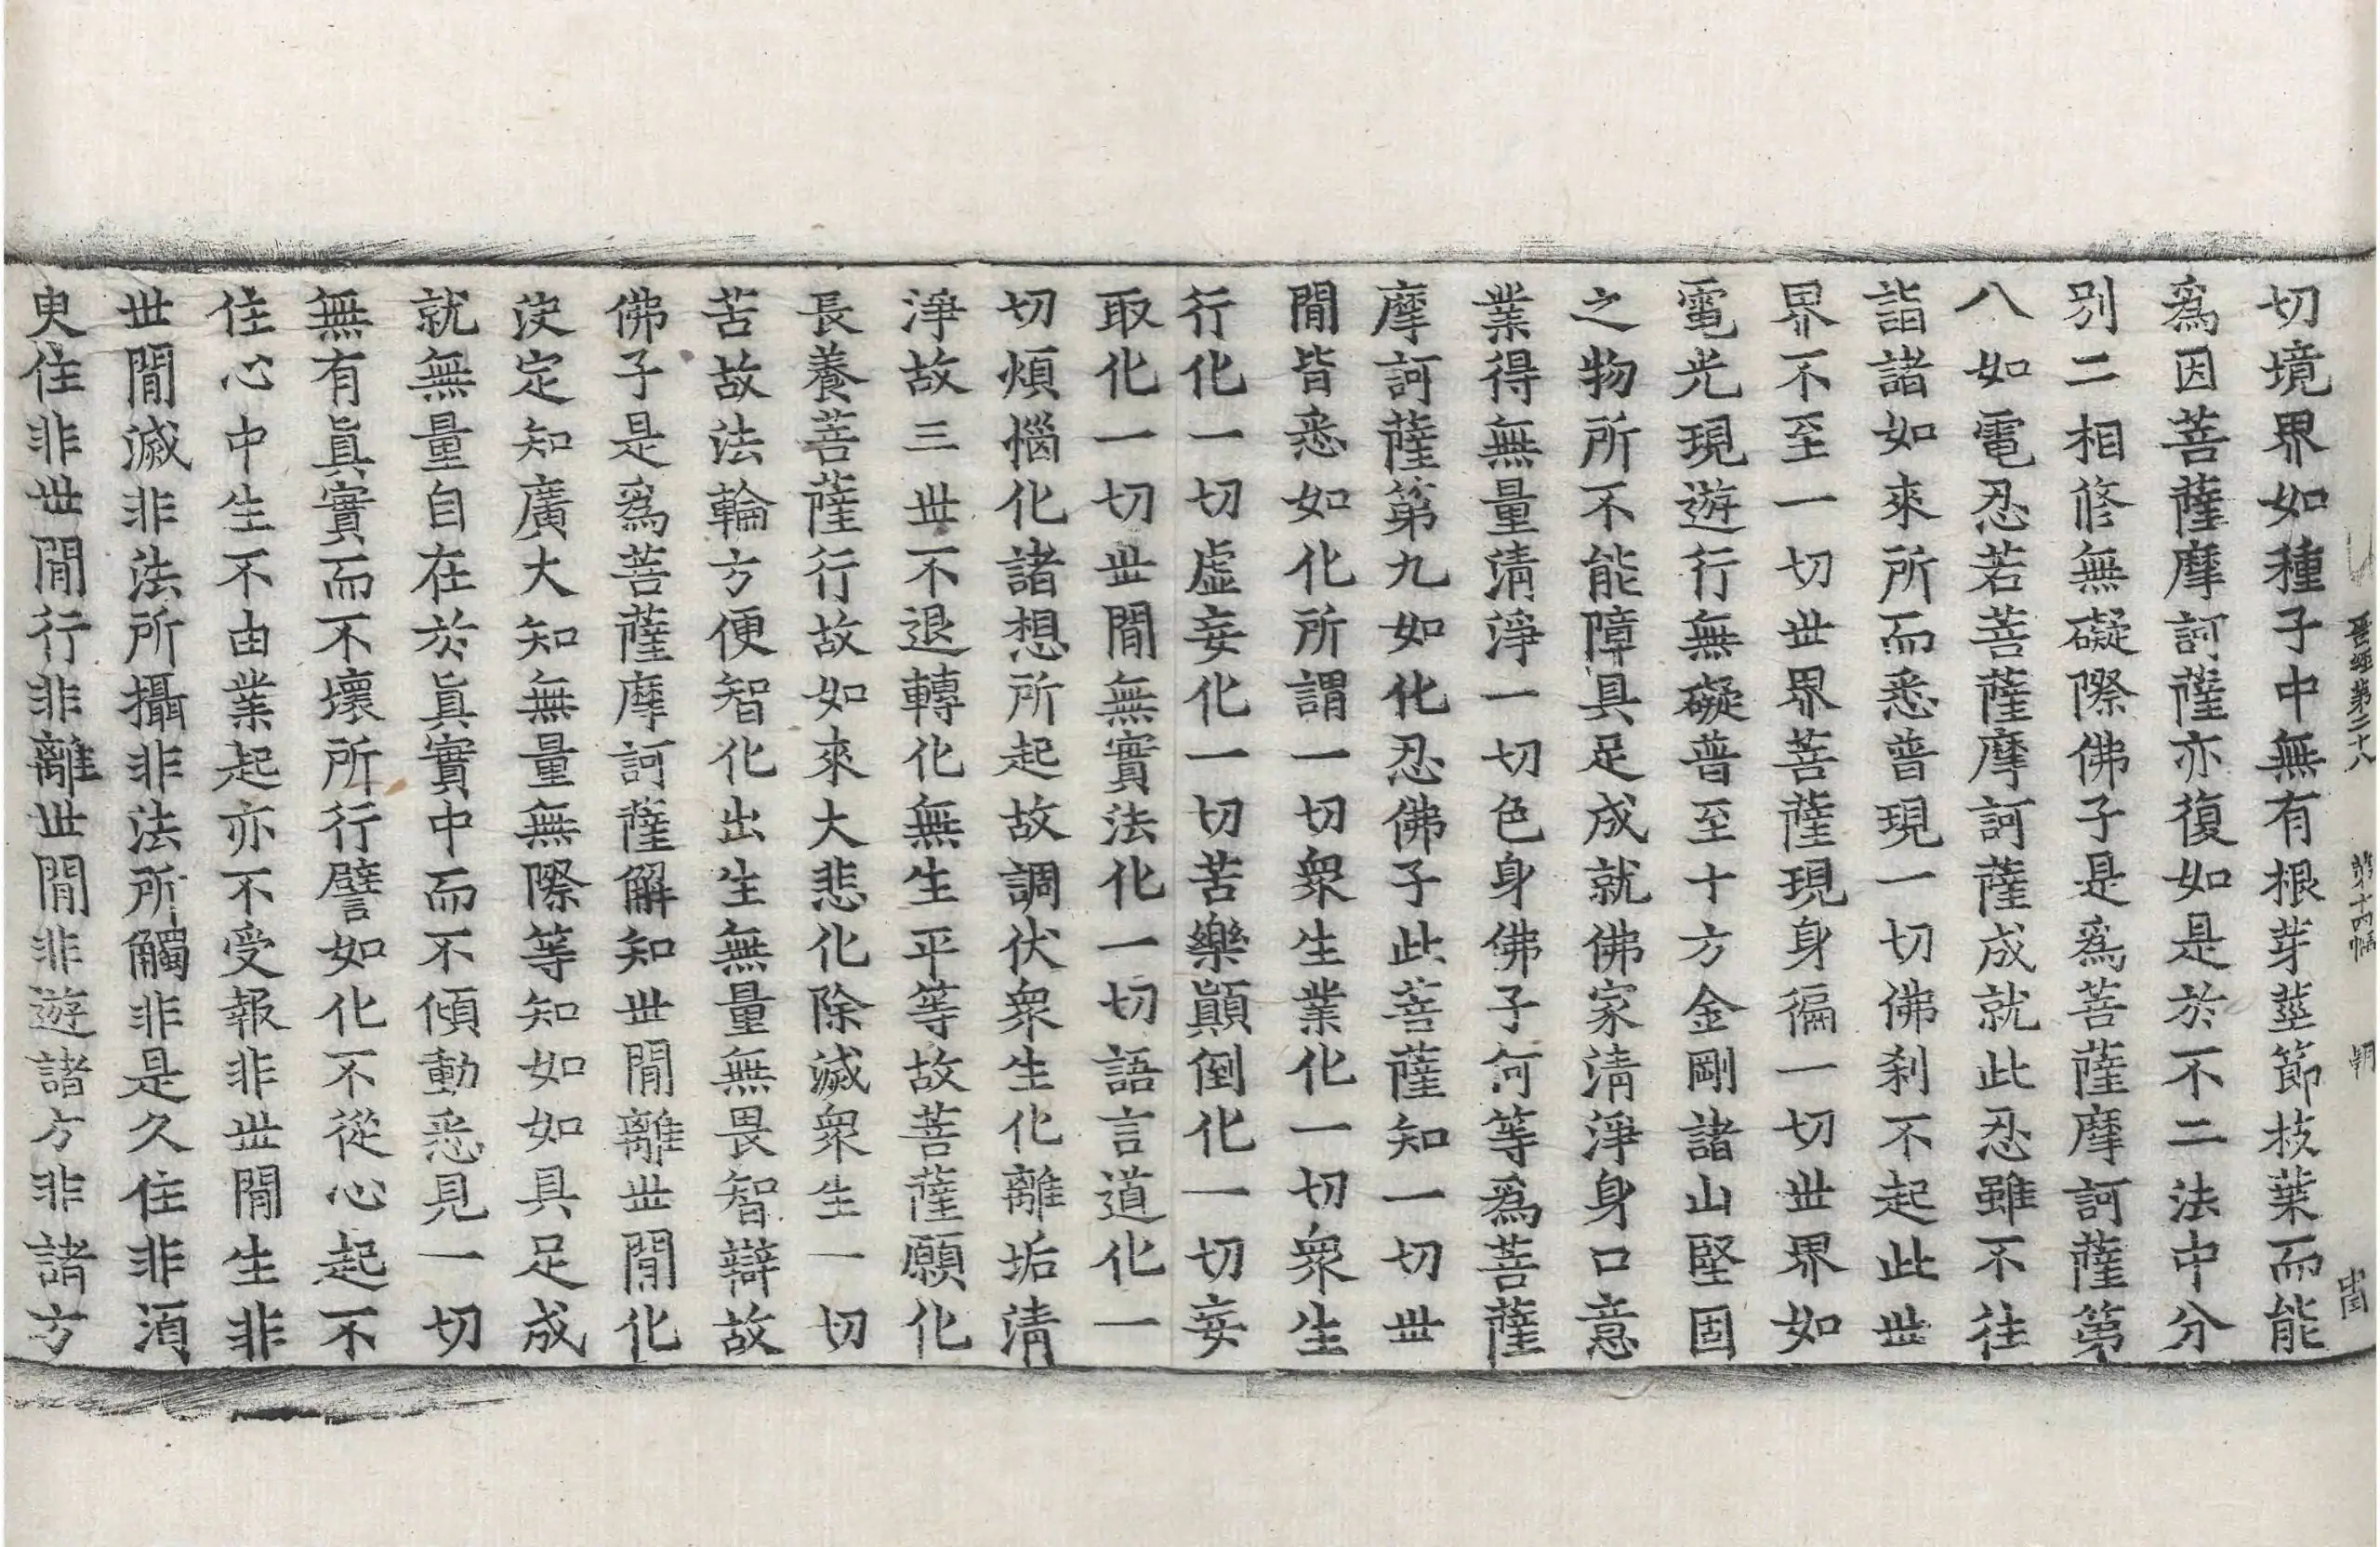 晉經第二十八 第十四幅
切境界如種子中無有根芽莖節枝葉而能
爲因菩薩摩訶薩亦復如是於不二法中分
別二相修無礙際佛子是爲菩薩摩訶薩第
八如電忍若菩薩摩訶薩成就此忍雖不往
詣諸如來所而悉普現一切佛刹不起此世
界不至一切世界菩薩現身徧一切世界如
電光現遊行無礙普至十方金剛諸山堅固
之物所不能障具足成就佛家清淨身口意
業得無量清淨一切色身佛子何等爲菩薩
摩訶薩第九如化忍佛子此菩薩知一切世
閒皆悉如化所謂一切衆生業化一切衆生
行化一切虛妄化一切苦樂顚倒化一切妄
取化一切世閒無實法化一切語言道化一
切煩惱化諸想所起故調伏衆生化離垢清
淨故三世不退轉化無生平等故菩薩願化
長養菩薩行故如來大悲化除滅衆生一切
苦故法輪方便智化出生無量無畏智辯故
佛子是爲菩薩摩訶薩解知世閒離世閒化
決定知廣大知無量無際等知如如具足成
就無量自在於眞實中而不傾動悉見一切
無有眞實而不壞所行譬如化不從心起不
住心中生不由業起亦不受報非世閒生非
世閒滅非法所攝非法所觸非是久住非須
臾住非世閒行非離世閒非遊諸方非諸方